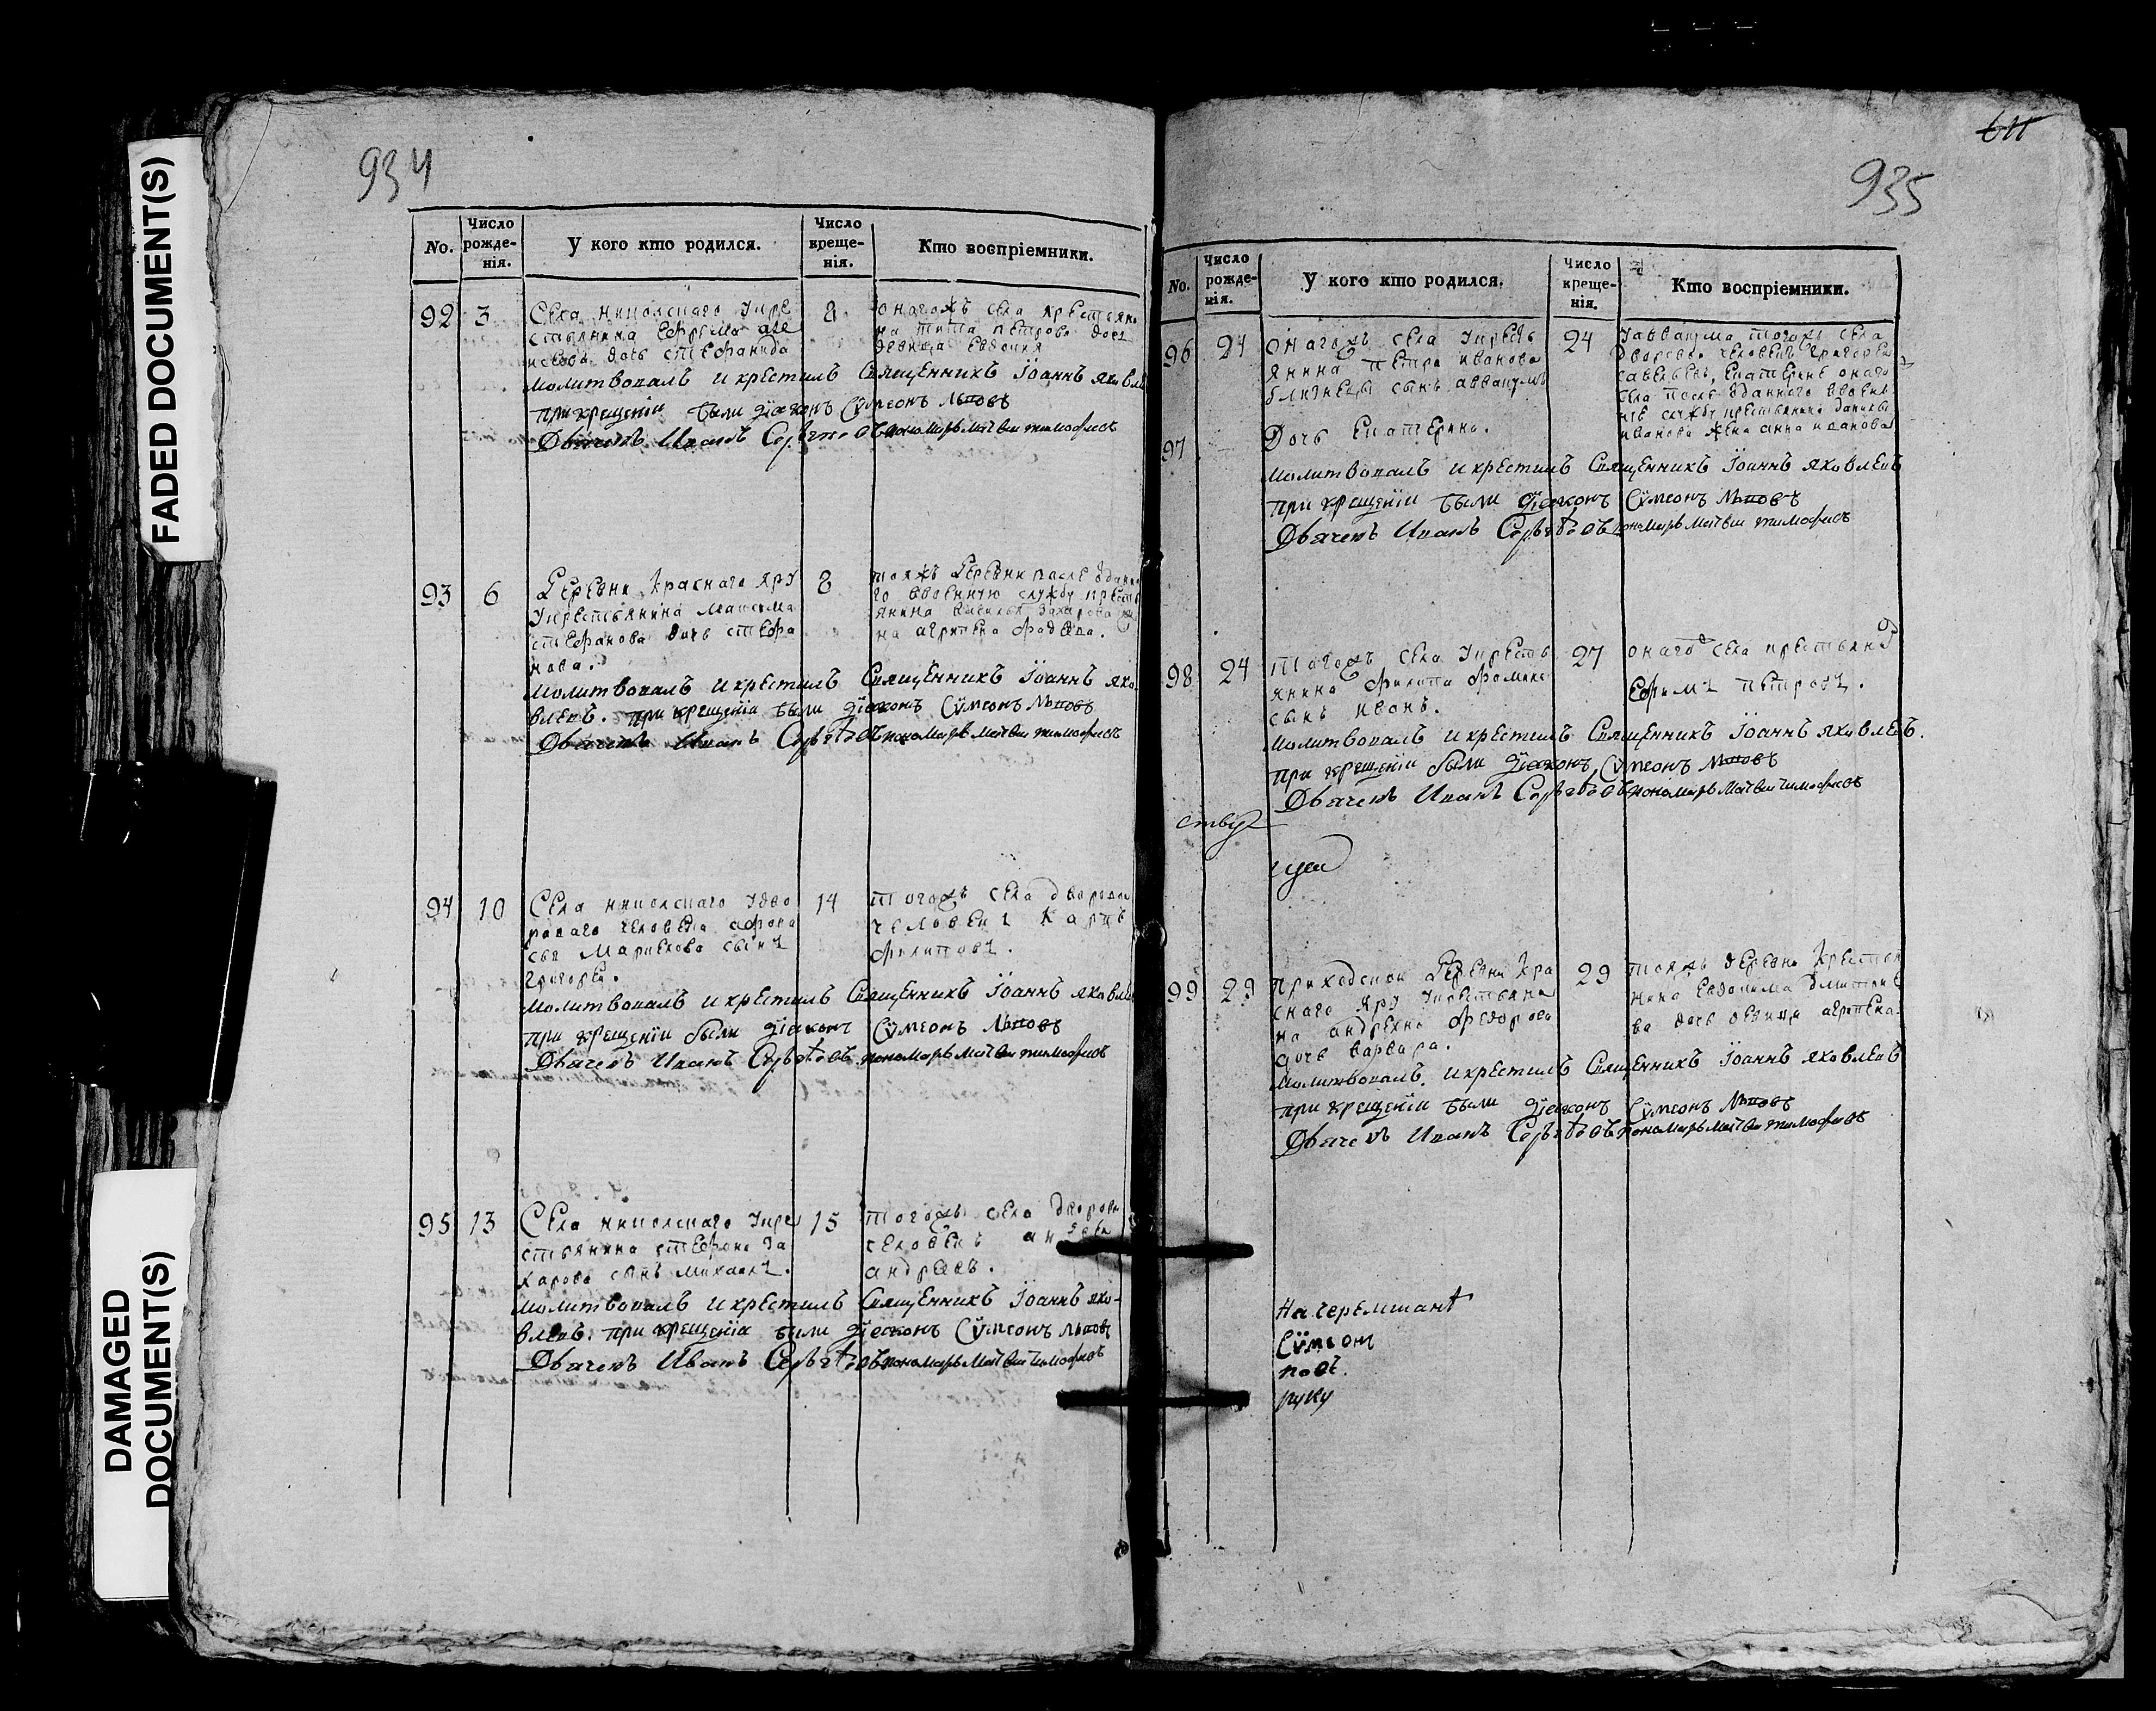 FADED DOCUMENT(S)
DAMAGED
DOCUMENT(S)
934
No.
Число
рожде-
нія.
У кого кто родился.
Число
креще-
нія.
Кто воспріемники.
92 3
Села никольскаго Укре
стьянина Ефрема але
дочь стефанида
8
онагожъ села крестьяни
на тита петрова дочь
девица Евдокия
молитвовалъ и крестилъ Священникъ Іоаннъ яковле
при крещеніи были діаконъ Сѵмеонъ
Дьячекъ Иванъ пономарь матвеи тимофеевъ
93 6
Деревни Краснаго яру
Укрестьянина Максима
стефанова дочь стефа
нида.
8
тояжъ Деревни после оданна
го ввоенную службу кресть
янина василья захарова же
на агрипена фадеева.
молитвовалъ и крестилъ Священникъ Іоаннъ яко
влевъ. при крещеніи были діаконъ Сѵмеонъ
Дьячекъ Иванъ пономарь матвеи тимофеевъ
94 10
Села никольскаго Удво
роваго человека афона
сья сынъ
григореи.
14
тогожъ села дворовои
человекъ Карпъ
филиповъ.
молитвовалъ и крестилъ Священникъ Іоаннъ яковле
при крещеніи были діаконъ Сѵмеонъ
Дьячекъ Иванъ пономарь матвеи тимофеевъ
95 13
Села никольскаго Укре
стьянина стефана за
харова сынъ михаилъ.
15
тогожъ села дворовы
человекъ
андреевъ.
молитвовалъ и крестилъ Священникъ Іоаннъ яко-
влевъ. при крещеніи были діаконъ Сѵмеонъ
Дьячекъ Иванъ пономарь матвеи тимофеевъ
935
No.
Число
рожде-
нія.
У кого кто родился.
Число
креще-
нія.
Кто воспріемники.
96 24
онагожъ села Укресть
янина петра иванова
близнецы сынъ аввакумъ
97
Дочь Екатерина.
24
Уаввакума тогожъ села
Дворовои человекъ григореи
савельевъ, Екатерине онаго
села после оданнаго ввоен
ную службу крестьянина данилы
иванова жена анна иванова
молитвовалъ и крестилъ Священникъ Іоаннъ яковлевъ
при крещеніи были діаконъ Сѵмеонъ
Дьячекъ Иванъ пономарь матвеи тимофеевъ
98 24
тогожъ села Укресть
янина филипа фомина
сынъ иванъ.
27
онаго села крестьянинъ
Ефимъ петровъ.
молитвовалъ и крестилъ Священникъ Іоаннъ яковлевъ.
при крещеніи были діаконъ Сѵмеонъ
Дьячекъ Иванъ пономарь матвеи тимофеевъ
99 29
приходскои деревни Кра
снаго яру Укрестьяни
на андреяна федорова
дочь варвара.
29
тояжъ деревни Крестья
нина Евдокима дмитрие
ва дочь девица агрипена
молитвовалъ. и крестилъ Священникъ Іоаннъ яковлевъ
при крещеніи были діаконъ Сѵмеонъ
Дьячекъ Иванъ пономарь матвеи тимофеевъ
Сѵмеонъ
руку